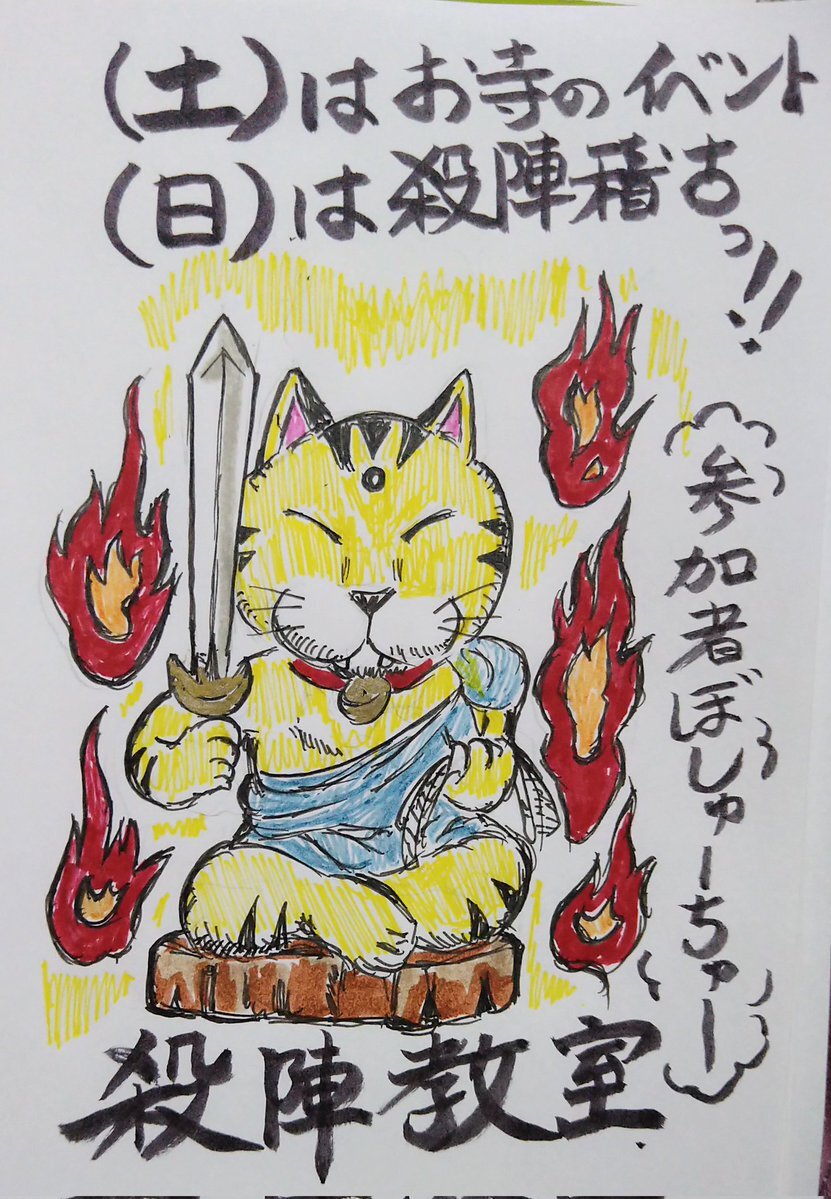 (土)はお寺のイベント
(日)は殺陣稽古っ!!
参加者ぼしゅーちゅー
殺陣教室